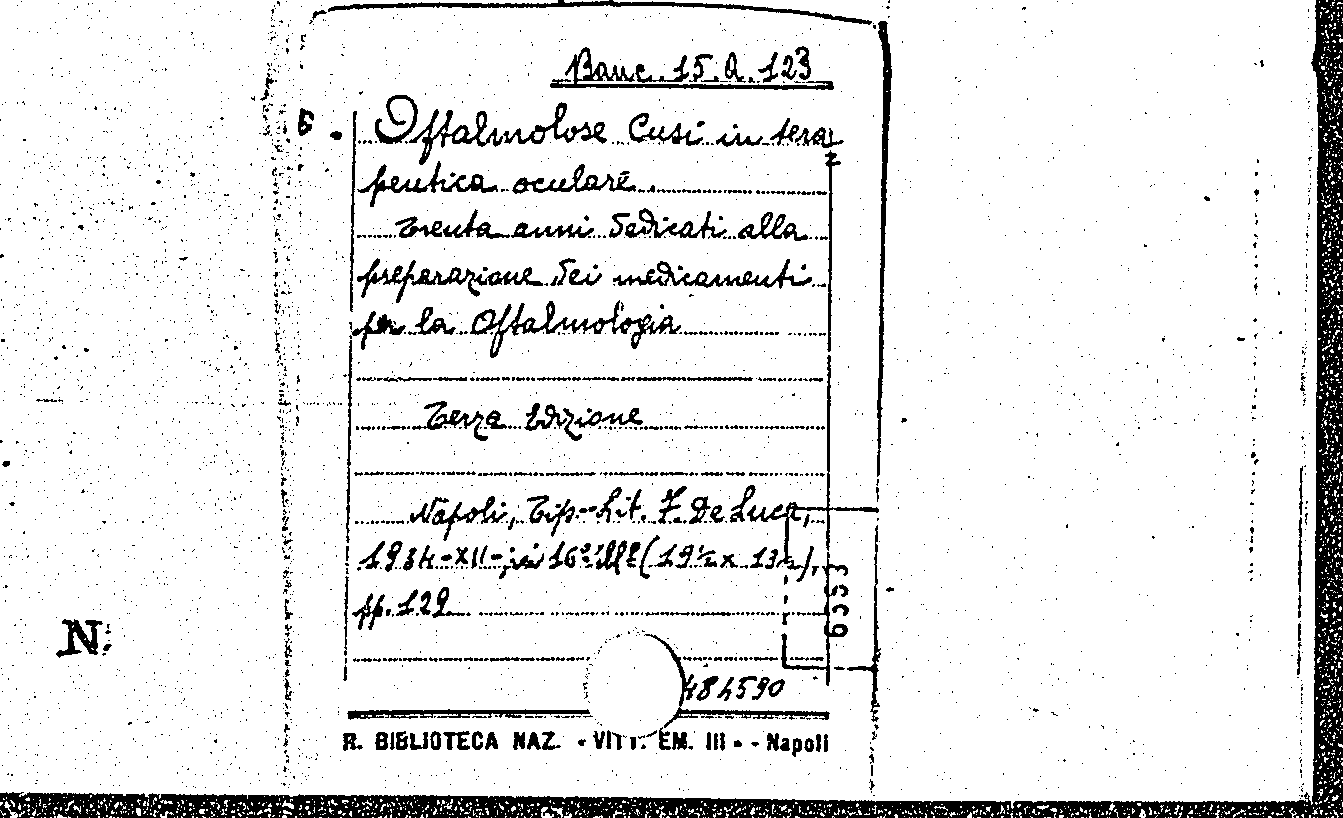 Banc. 15. A. 123
6. Oftalmolose Cusi in tera
peutica oculare.
Trenta anni dedicati alla
preparazione dei medicamenti
per la Oftalmologia
Terza Edizione
Napoli, Tip.-Lit. F. De Luca,
1934-XII-; in 16º ill (19½ x 13½),
pp. 129
6553
484590
R. BIBLIOTECA NAZ. - VITT. EM. III - - Napoli
N